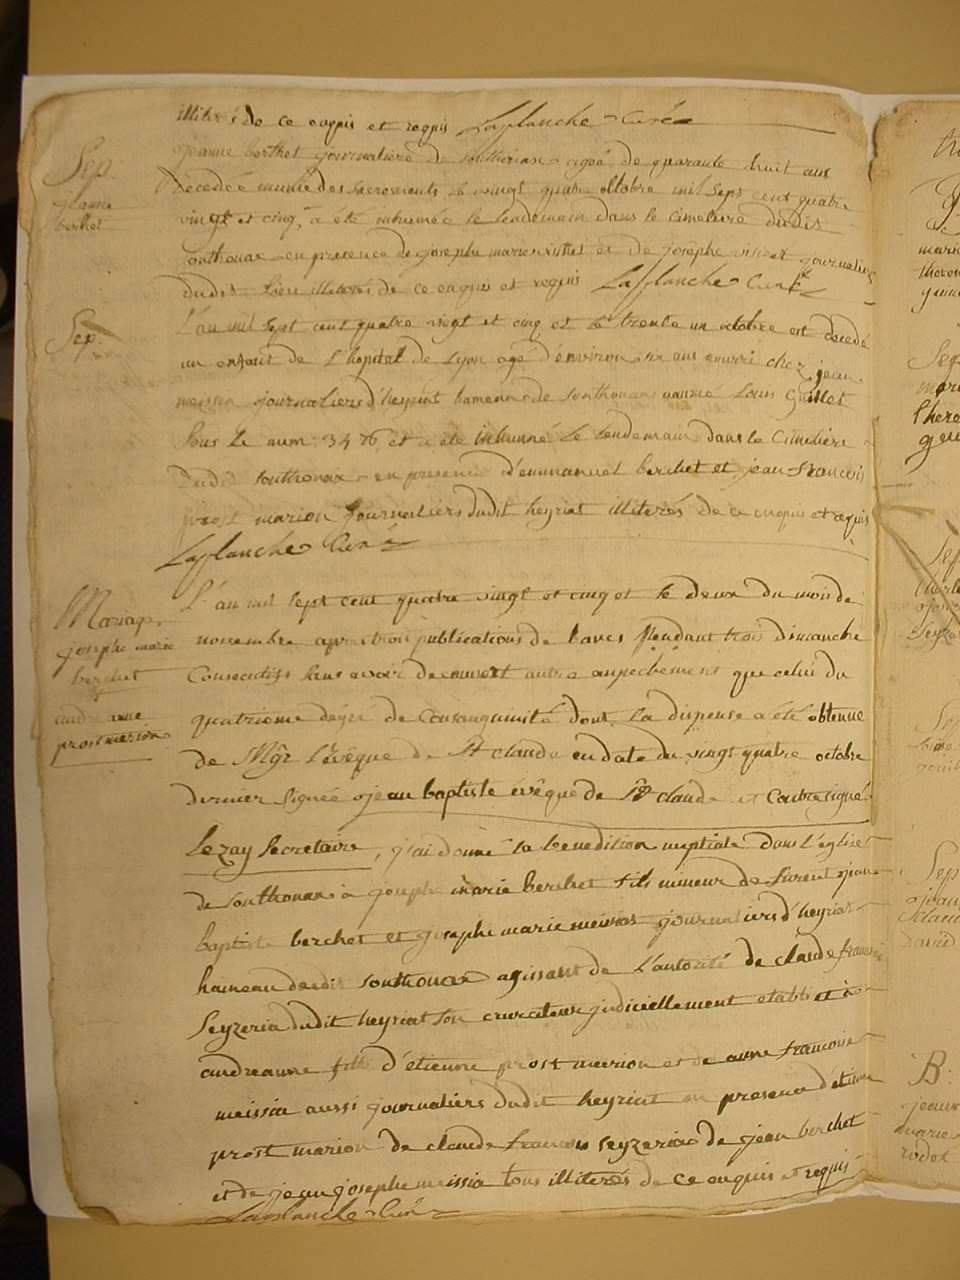 illiterés de ce enquis et requis Laplanche Curé
Sep.
jeanne
berchet
jeanne berthet journaliere de Sonthonax agée de quarante huit ans
decedée munie des sacrements le vingt quatre octobre mil sept cent quatre
vingt et cinq, a eté inhumée le lendemain dans le cimetiere dudit
Sonthonax en presence de josephe marie et de josephe journaliers
dudit lieu illiterés de ce enquis et requis Laplanche Curé
Sep.
L'an mil sept cent quatre vingt et cinq et le trente un octobre est decedé
un enfant de l'hopital de Lyon agé d'environ six ans nourri chez jean
meissia journaliers d'heyriat hameau de Sonthonax nommé Louis Guillet
sous le num: 3476 et a eté inhumé le lendemain dans le Cimetiere
dudit Sonthonax en presence d'emmanuel berchet et jean francois
prost marion journaliers dudit heyriat illiterés de ce enquis et requis
Laplanche Curé
Mariage
josephe marie
berchet
et
andreanne
prost marion
L'an mil sept cent quatre vingt et cinq et le deux du mois de
novembre apres trois publications de bancs pendant trois dimanche
Consecutifs sans avoir decouvert autre anpechement que celui du
quatrieme degré de Consanguinité dont la dispense a été obtenue
de Mgr L'évêque de St claude en date du vingt quatre octobre
dernier signée jean baptiste évêque de St claude et Contresigné
Lezay Secretaire, j'ai donné la benediction nuptiale dans l'église
de Sonthonax à josephe marie berchet fils mineur de jean
baptiste berchet et josephe marie meissia journaliers d'heyriat
hameau dudit Sonthonax agissant de L'autorité de claude francois
Seyzeria dudit heyriat son curateur judiciellement etabli et à
andreanne fille d'etienne prost marion et de anne francoise
meissia aussi journaliers dudit heyriat en presence d'etienne
prost marion de claude francois seyzeria de jean berchet
et de jean josephe meissia tous illiterés de ce enquis et requis
Laplanche Curé